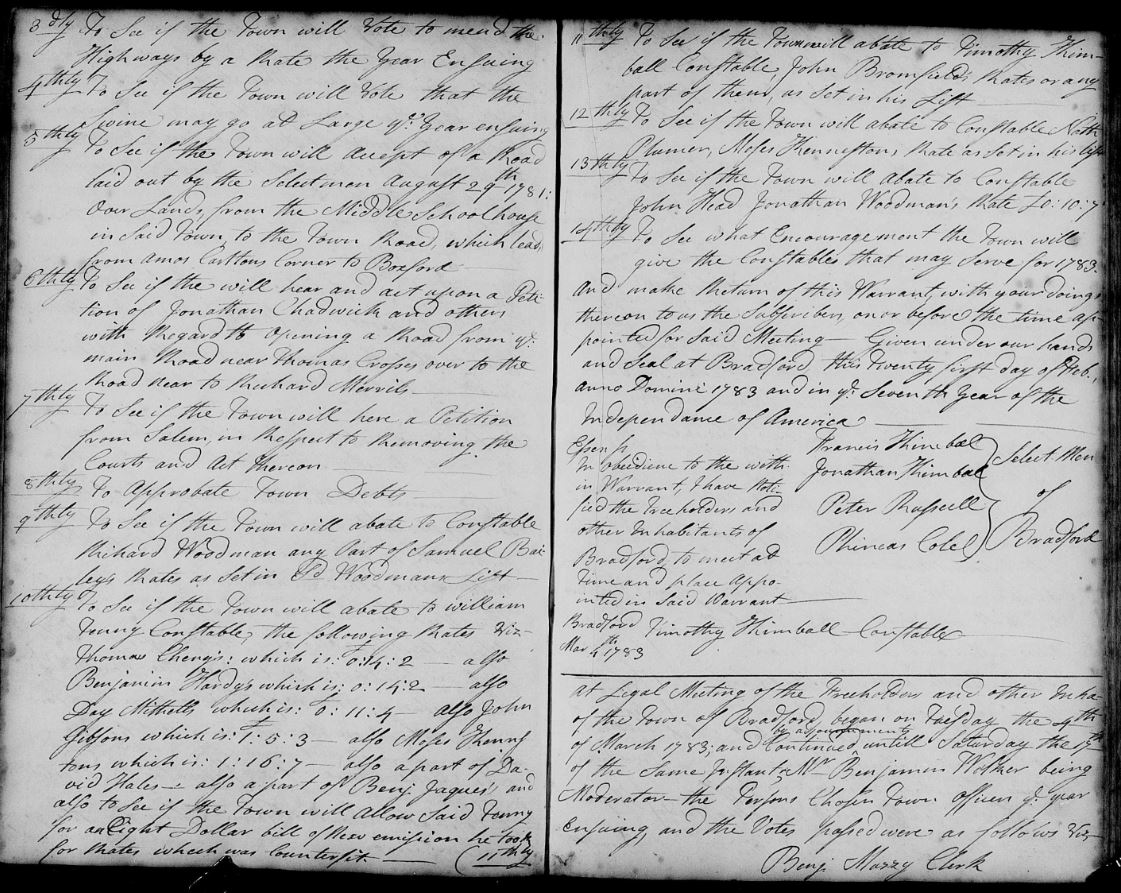 3dly To See if the Town will Vote to mend the
Highways by a Rate the Year Ensuing
4thly To See if the Town will Vote that the
Swine may go at Large ye Year ensuing
5thly To See if the Town will Accept of a Road
laid out by the Selectmen August 29th 1781:
Over Lands, from the Middle School house
in Said Town, to the Town Road, which leads
from Amos Carltons Corner to Boxford
6thly To See if the will hear and act upon a Peti-
tion of Jonathan Chadwick and others
with Regard to opening a Road from ye
main Road near Thomas Crosses over to the
Road near to Richard Morrils
7thly To See if the Town will here a Petition
from Salem, in Respect to Removing the
Courts and Act thereon
8thly To Approbate Town Debts
9thly To See if the Town will abate to Constable
Richard Woodman any Part of Samuel Bai-
ley's Rates as Set in Sd Woodmans List
10thly To See if the Town will abate to william
Tenny Constable, the following Rates Viz
Thomas Cheny's: which is: 0:14:2 — also
Benjamin Hardy's which is: 0:14:2 — also
Day Mitchells, which is: 0:11:4 — also John
Gibsons which is: 1:5:3 — also Moses Kennis
tons which is: 1:16:7 — also a part of Da-
vid Hales — also a part of Benj. Jaques's and
also to See if the Town will allow Said Tenny
for an Eight Dollar bill of New emision he took
for Rates which was Counterfit — (11thly
11thly To See if the Town will abate to Timothy Kim-
ball Constable, John Bromfield's Rates or any
part of them, as Set in his List
12thly To See if the Town will abate to Constable Nath
Plumer, Moses Kennistons Rate as Set in his list
13thly To See if the Town will Abate to Constable
John Head Jonathan Woodman's Rate £0:10:7
14thly To See what Encouragement the Town will
give the Constables that may Serve for 1783.
And make Return of this Warrant, with your doings
thereon to us the Subscribers, on or before the time ap-
pointed for Said Meeting — Given under our hands
and Seal at Bradford this twenty first day of Feb.
anno Domini 1783 and in ye Seventh Year of the
Independance of America
Francis Kimbal
Jonathan Kimbal
Peter Russell
Phineas Cole
Select Men
of
Bradford
Essex Ss
In obedience to the with
in Warrant, I have Noti-
fied the Freeholders and
other Inhabitants of
Bradford, to meet at
time and place appo-
inted in Said Warrant
Bradford Timothy Kimball Constable
Mar 4th 1783
At Legal Meeting of the Freeholders and other Inha
of the Town of Bradford, began on Tuesday the 4th
by adjournments
of March 1783; and Continued, untill Saturday the 17th
of the Same Instant, Mr Benjamin Walker being
Moderator — the Persons Chosen Town officers ye year
Ensuing, and the Votes passed were as follows Viz
Benj. Muzzy Clerk